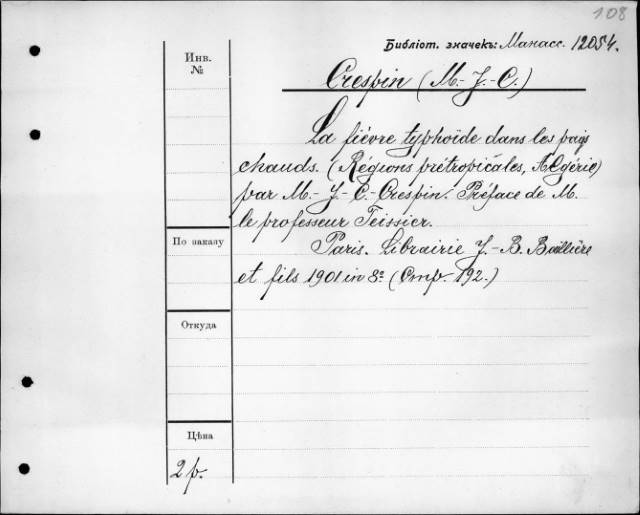 108
Библіот. значекъ: Манасс. 12054.
Инв.
№
Crespin (M.-J.-C.)
La fièvre typhoïde dans les pays
chauds. (Régions prétropicales, Algérie)
par M.-J.-C.-Crespin. Préface de M.
le professeur Teissier.
По заказу
Paris. Librairie J.-B. Baillière
et fils 1901 in 8º (Стр. 192.)
Откуда
Цѣна
2 р.